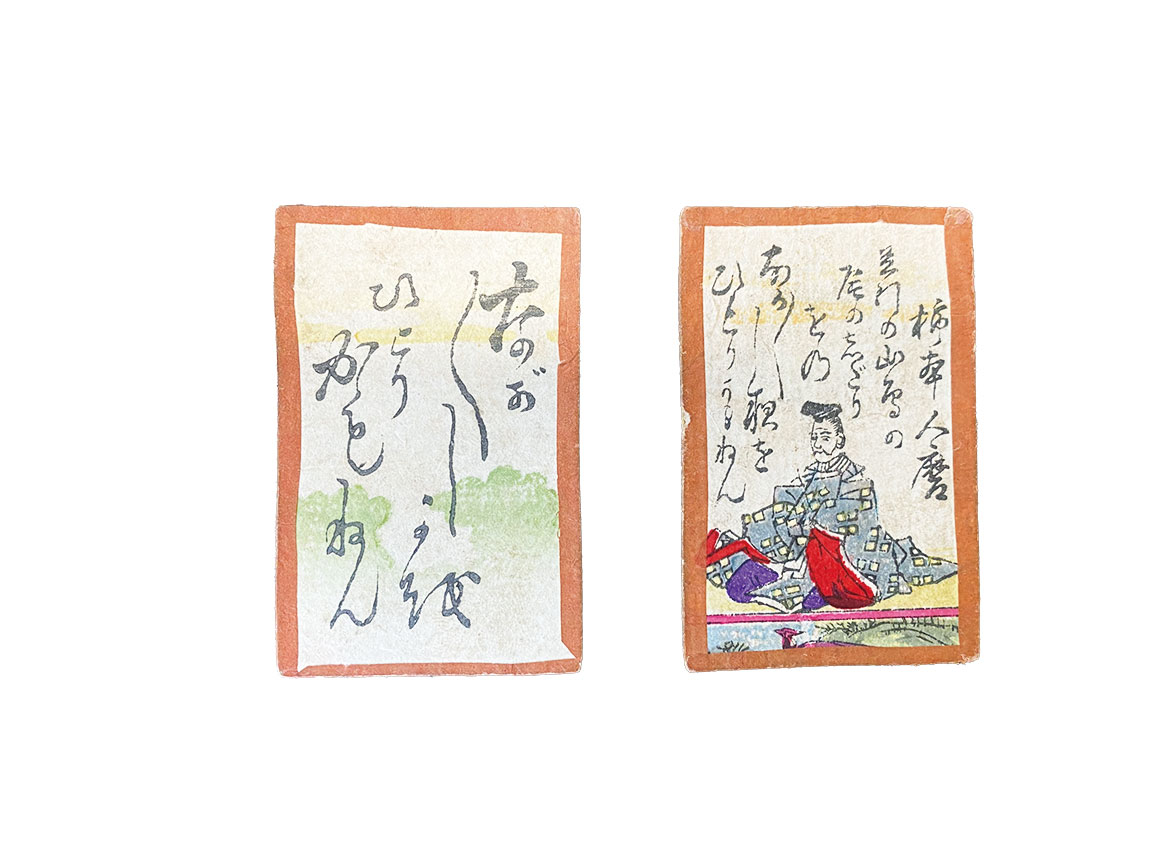 柿本人麿
足引の山鳥の
尾のしだり
をの
なが〱し夜を
ひとりかもねん
なが〱
しよを
ひとり
かもねん